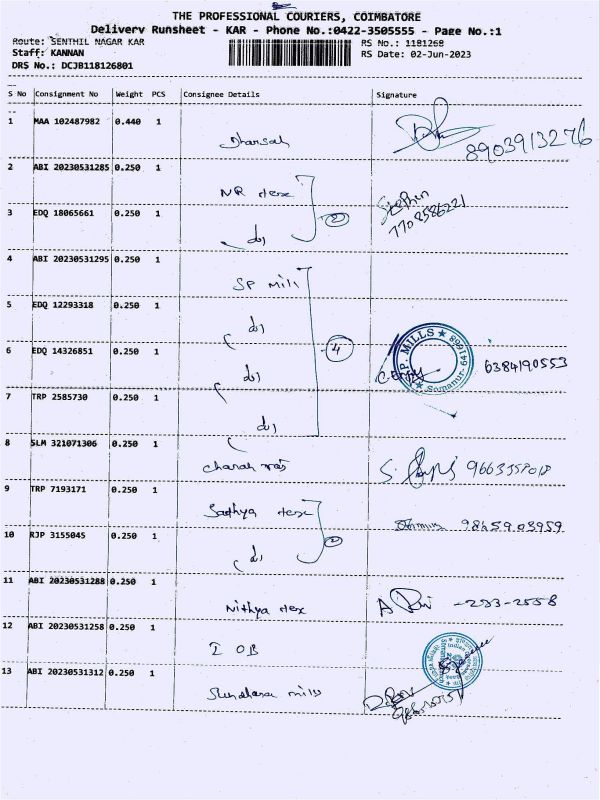 THE PROFESSIONAL COURIERS, COIMBATORE
Delivery Runsheet - KAR - Phone No.:0422-3505555 - Page No.:1
Route: SENTHIL NAGAR KAR RS No.: 1181268
Staff: KANNAN RS Date: 02-Jun-2023
DRS No.: DCJB118126801
S No Consignment No Weight PCS Consignee Details Signature
1 MAA 102487982 0.440 1
8903913276
2 ABI 20230531285 0.250 1
NR tex
Stephen
7708586221
3 EDQ 18065661 0.250 1
2
do
4 ABI 20230531295 0.250 1
SP mill
5 EDQ 12293318 0.250 1
do
6 EDQ 14326851 0.250 1
4
P. MILLS
Somanur - 641668
6384190553
do
7 TRP 2585730 0.250 1
do
8 SLM 321071306 0.250 1
9 TRP 7193171 0.250 1
Sathya tex
9845903959
10 RJP 3155045 0.250 1
2
do
11 ABI 20230531288 0.250 1
Nithya tex
-233-2558
12 ABI 20230531258 0.250 1
I OB
13 ABI 20230531312 0.250 1
Sundhara mills